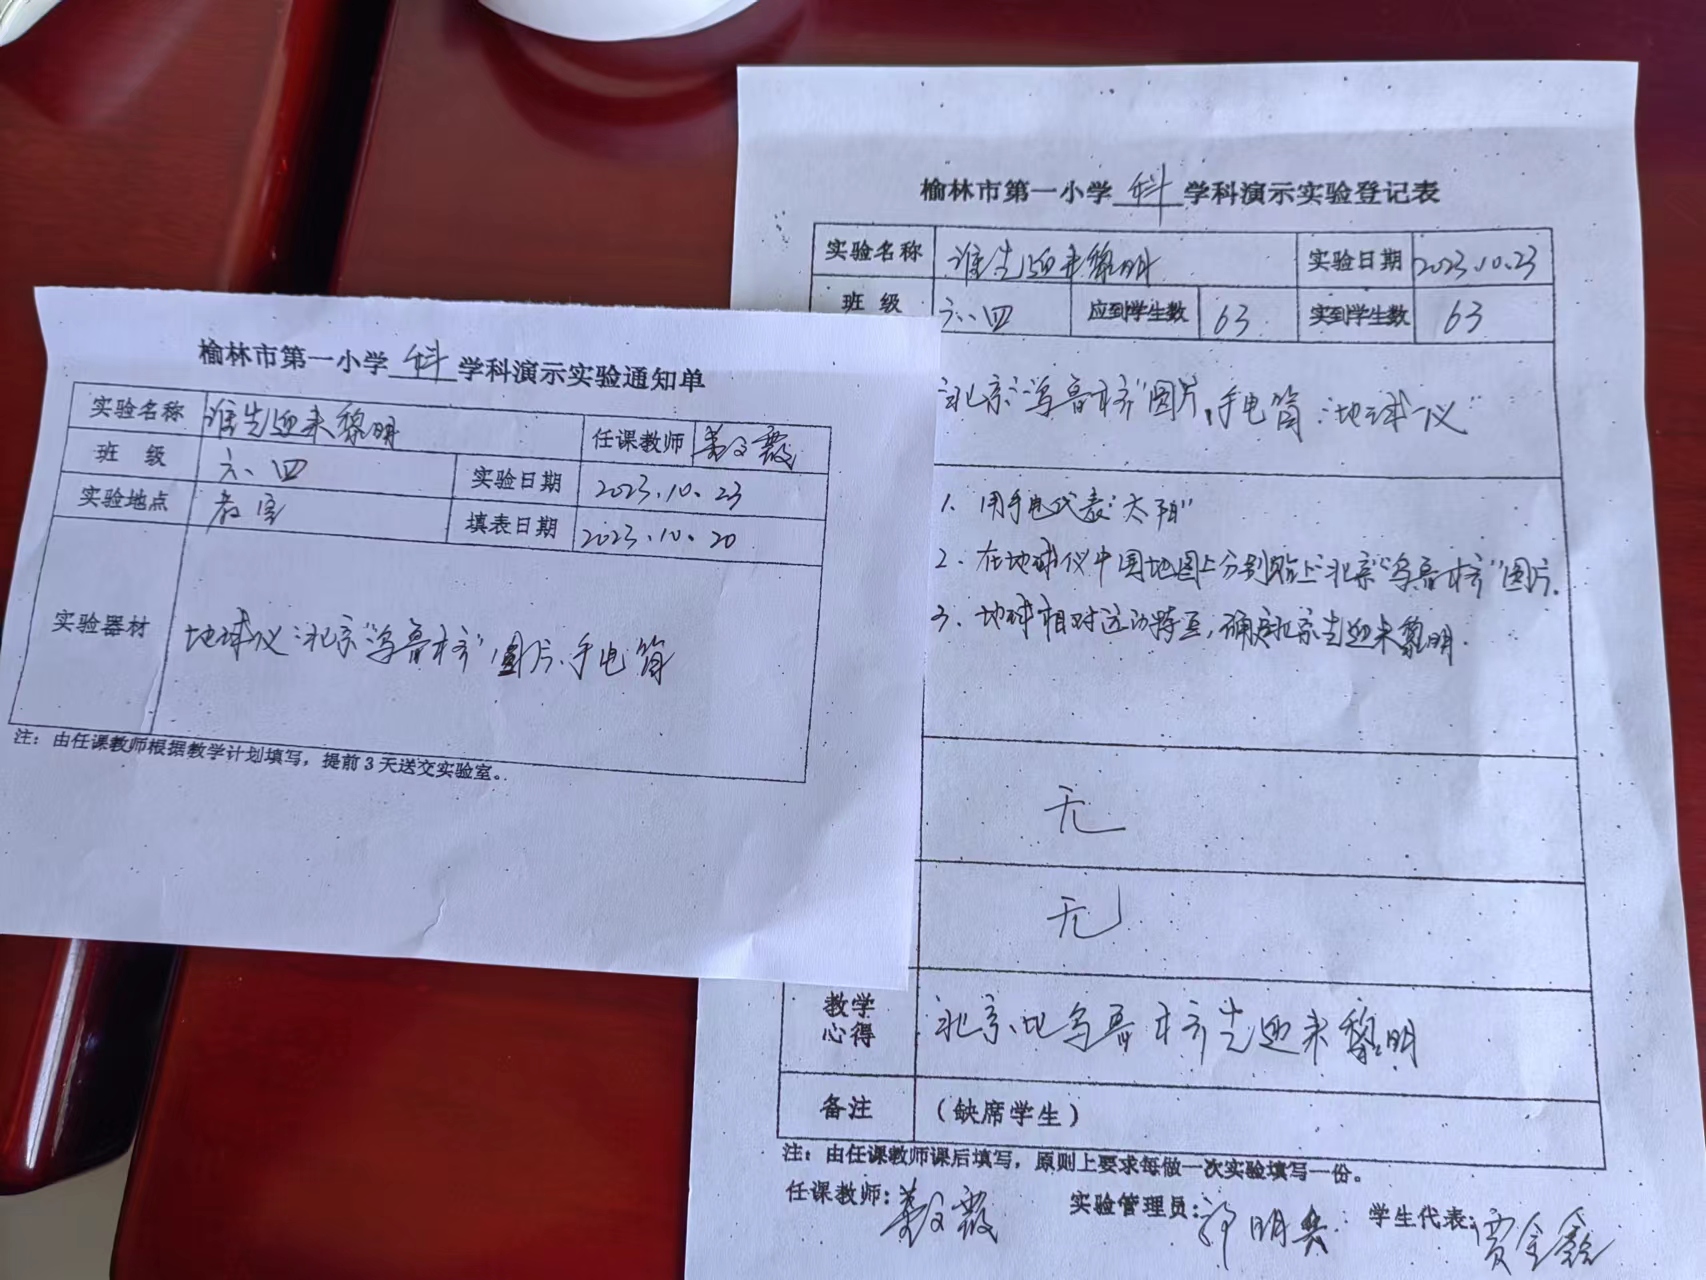 榆林市第一小学 科 学科演示实验通知单
实验名称 谁先迎来黎明 任课教师
班 级 六.四 实验日期 2023.10.23
实验地点 教室 填表日期 2023.10.20
实验器材 地球仪"北京""乌鲁木齐"图片.手电筒
注：由任课教师根据教学计划填写，提前3天送交实验室。
榆林市第一小学 科 学科演示实验登记表
实验名称 谁先迎来黎明 实验日期 2023.10.23
班 级 六.四 应到学生数 63 实到学生数 63
"北京""乌鲁木齐"图片,手电筒"地球仪"
1. 用手电代表"太阳"
2. 在地球仪中国地图上分别贴上"北京""乌鲁木齐"图片.
3. 地球相对运动特点,确定北京先迎来黎明.
无
无
教学
心得
北京比乌鲁木齐先迎来黎明
备注 （缺席学生）
注：由任课教师课后填写，原则上要求每做一次实验填写一份。
任课教师: 实验管理员: 学生代表: